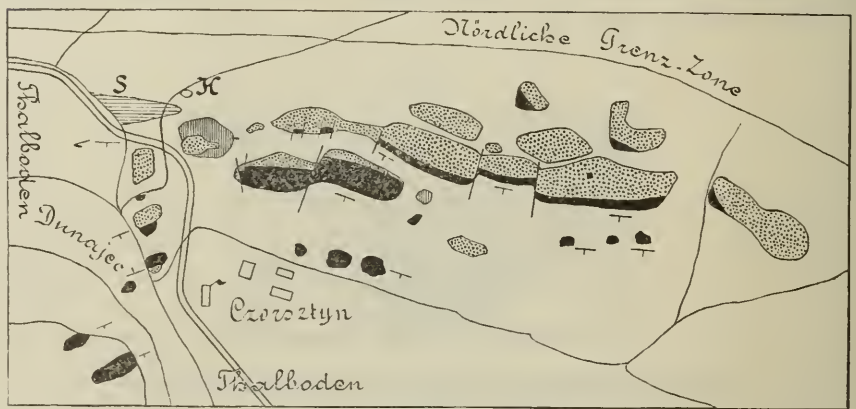 Nördliche Grenz-Zone
S
H
Thalboden
Dunajec
Czorsztyn
Thalboden